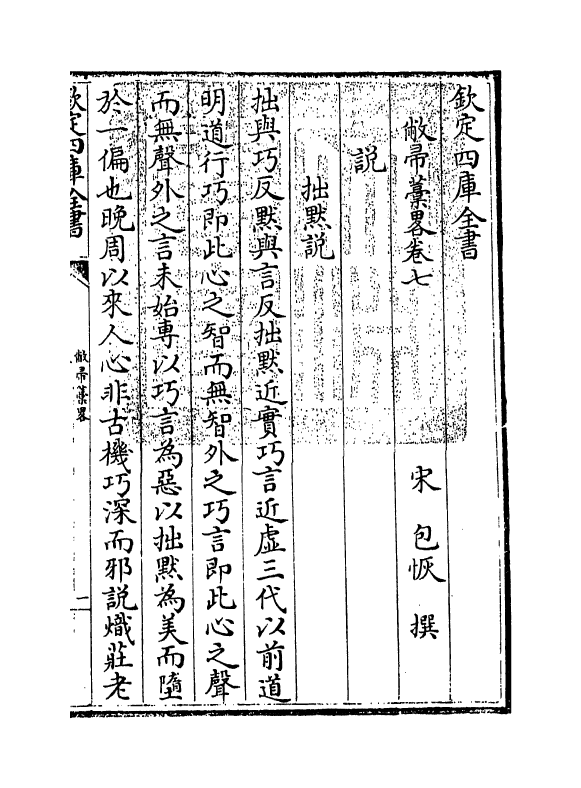 欽定四庫全書
敝帚藁畧卷七
宋 包恢 撰
説
拙黙説
拙與巧反黙與言反拙黙近實巧言近虛三代以前道
明道行巧即此心之智而無智外之巧言即此心之聲
而無聲外之言未始專以巧言為惡以拙黙為美而墮
於一偏也晚周以來人心非古機巧深而邪説熾莊老
欽定四庫全書
敝帚藁畧
一